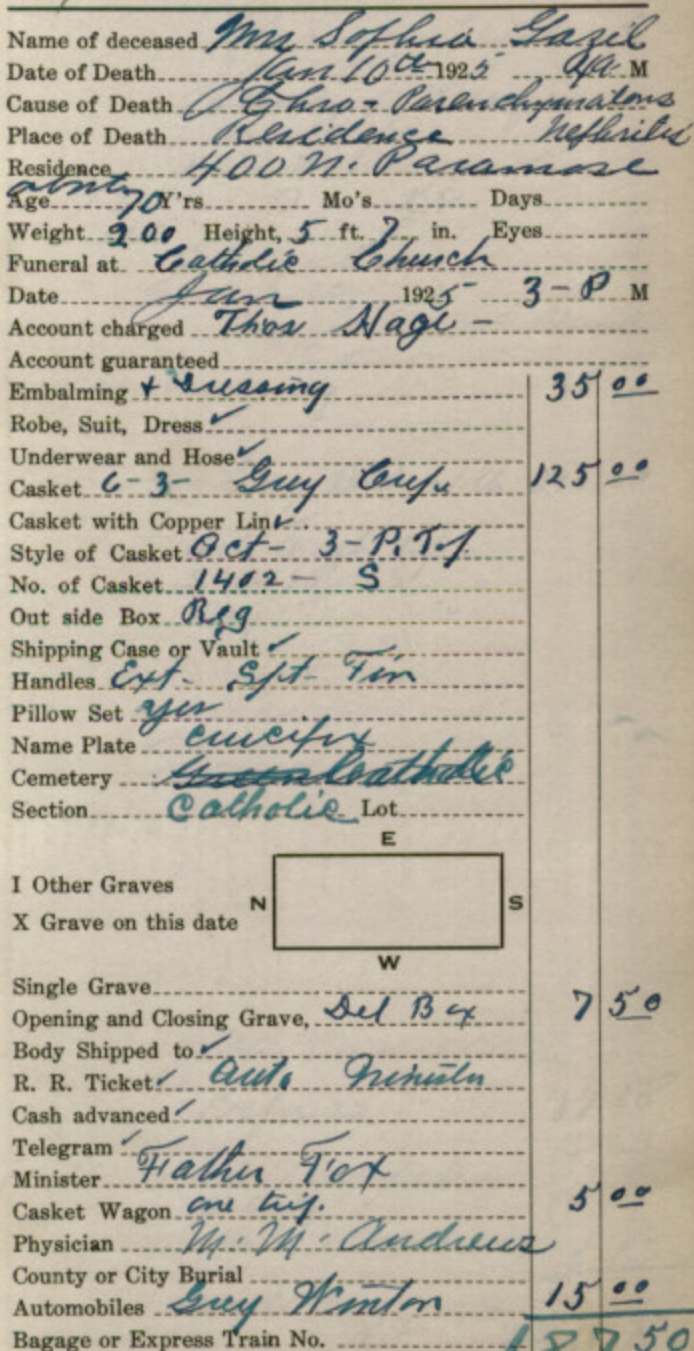 Name of deceased Mrs Sophia Gazil
Date of Death Jan 10th 1925 9 a M
Cause of Death Chro - Parenchymatous
Nephritis
Place of Death Residence
Residence 400 N.
about
Age 70 Y'rs Mo's Days
Weight 200 Height, 5 ft. 7 in. Eyes
Funeral at Catholic Church
Date Jan 1925 3 - P M
Account charged Thos Nage -
Account guaranteed
Embalming + Dressing 35 00
Robe, Suit, Dress ✓
Underwear and Hose ✓
Casket 6 - 3 - Grey Crepe 125 00
Casket with Copper Lin ✓
Style of Casket Oct - 3 - P. Top
No. of Casket 1402 - S
Out side Box Reg
Shipping Case or Vault ✓
Handles Ext - Tim
Pillow Set yes
Name Plate crucifix
Cemetery Green Catholic
Section Catholic Lot
E
I Other Graves
N S
X Grave on this date
W
Single Grave
Opening and Closing Grave, Del Box 7 50
Body Shipped to ✓
R. R. Ticket ✓ Auto Minister
Cash advanced ✓
Telegram ✓
Minister Father Fox
Casket Wagon one trip. 5 00
Physician M. M. Andrews
County or City Burial
Automobiles Grey Winton 15 00
Bagage or Express Train No. 187 50